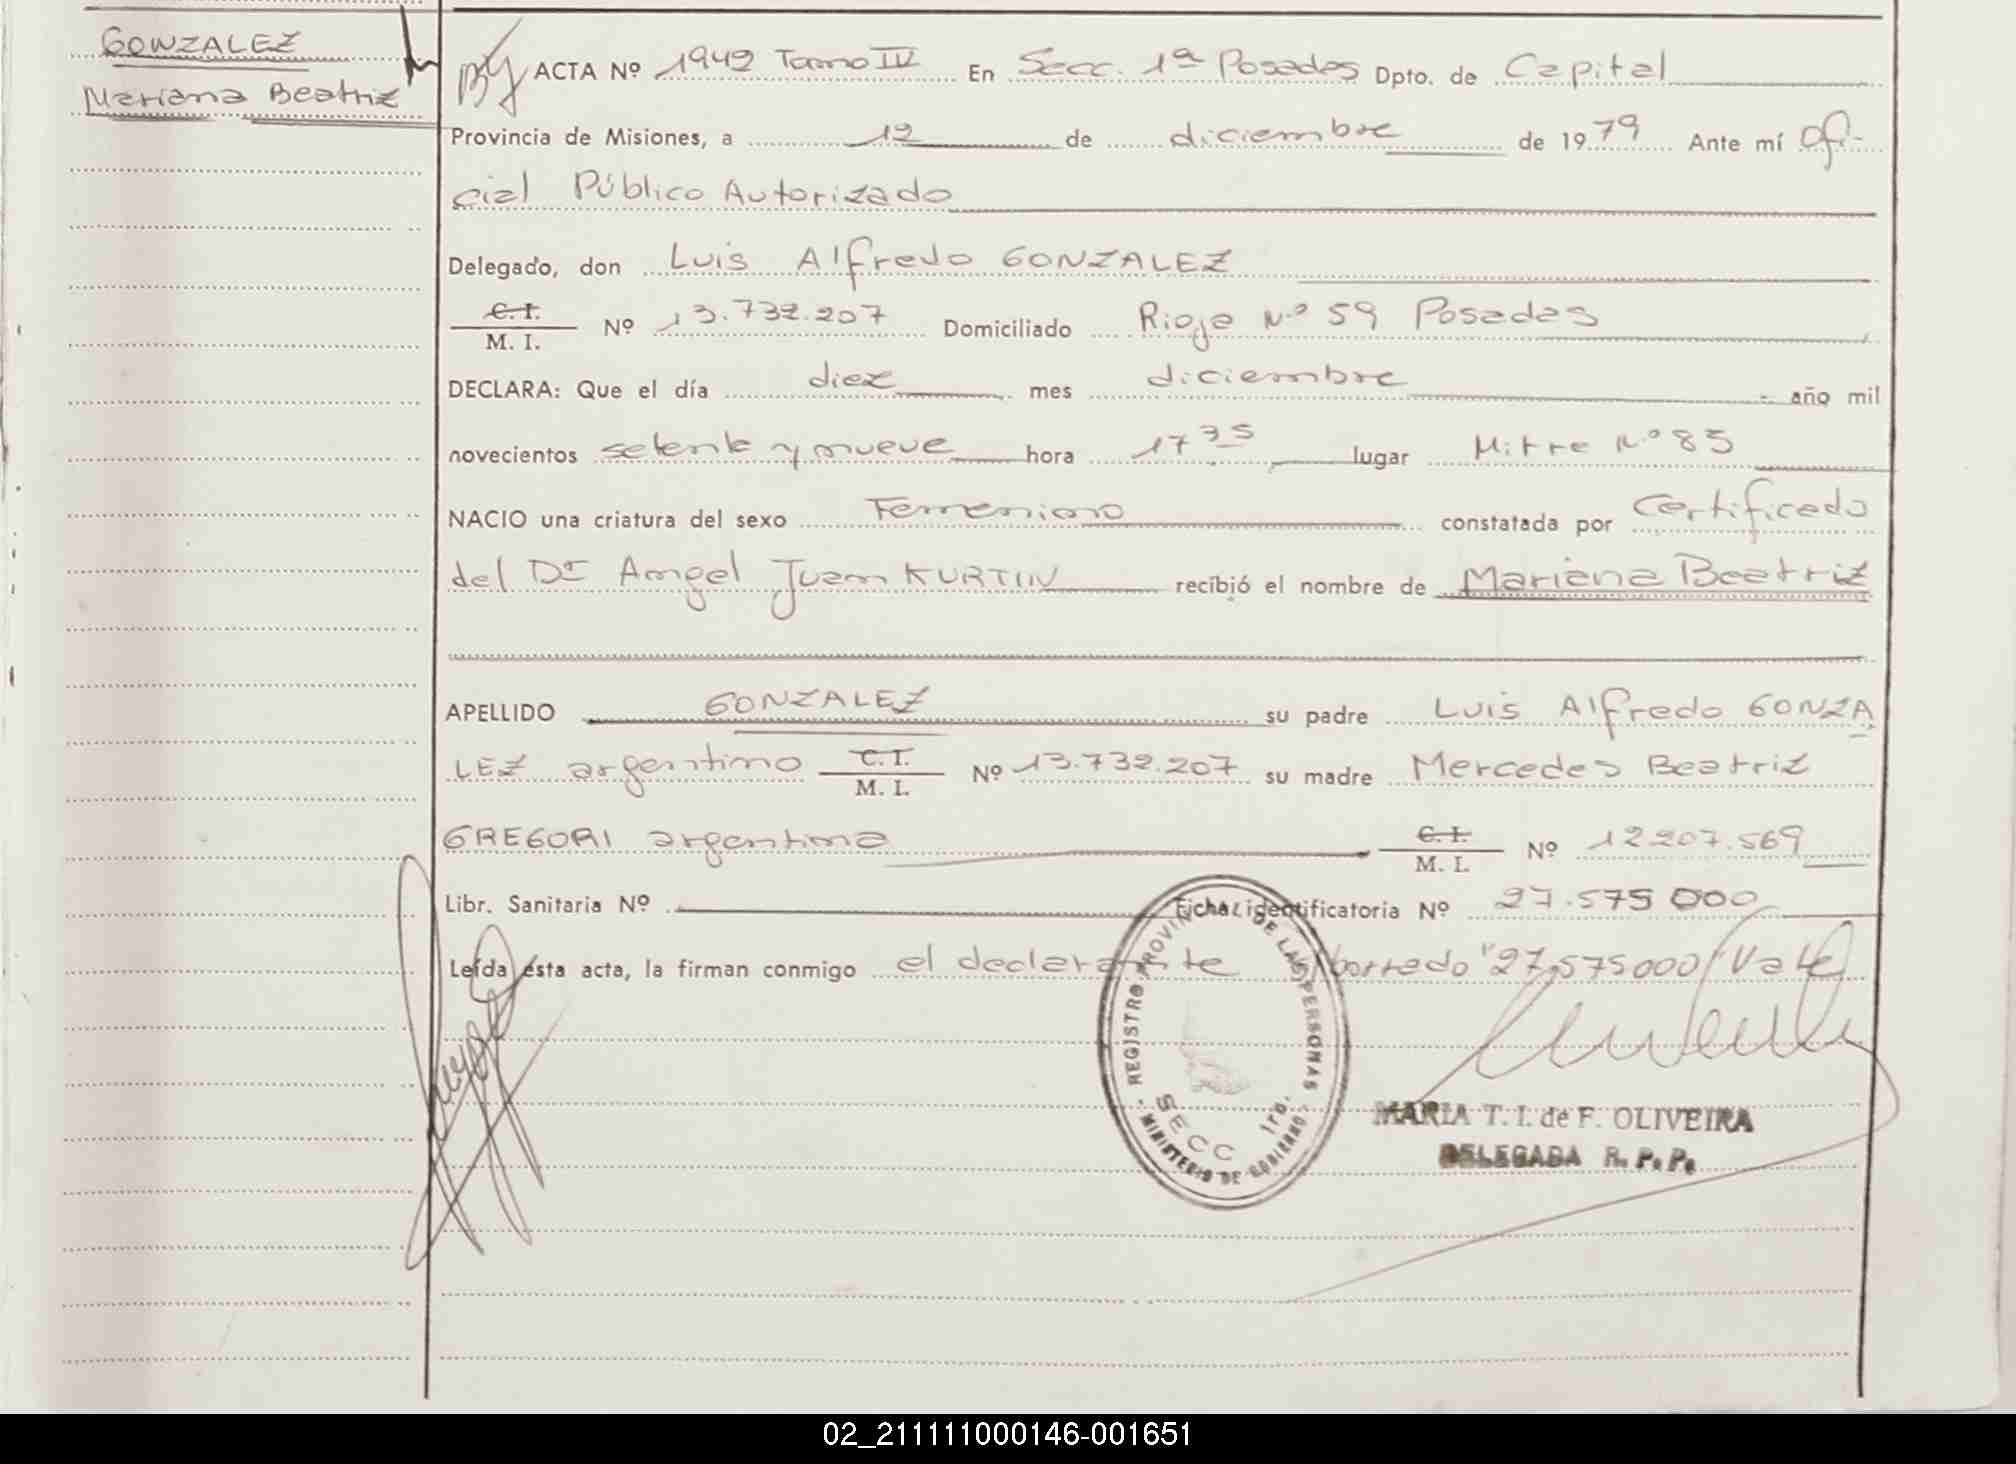 GONZALEZ
Mariana Beatriz
ACTA Nº 1942 Tomo IV En Secc. 1ª Posadas Dpto. de Capital
Provincia de Misiones, a 12 de diciembre de 1979 Ante mí Ofi-
cial Público Autorizado
Delegado, don Luis Alfredo GONZALEZ
C.I.
M. I. Nº 13.732.207 Domiciliado Rioja Nº 59 Posadas
DECLARA: Que el día diez mes diciembre año mil
novecientos setenta y nueve hora 17 35 lugar Mitre Nº 85
NACIO una criatura del sexo Femenino constatada por Certificado
del Dr Angel Juan KURTIN recibió el nombre de Mariana Beatriz
APELLIDO GONZALEZ su padre Luis Alfredo GONZA
LEZ argentino C.I. M. I. Nº 13.732.207 su madre Mercedes Beatriz
GREGORI argentina C.I. M. I. Nº 12.207.569
Libr. Sanitaria Nº Ficha identificatoria Nº 27.575 000
Leída ésta acta, la firman conmigo el declarante borrado "27.575000" Vale
REGISTRO PROVINCIAL DE LAS PERSONAS
SECC 1ra.
MINISTERIO DE GOBIERNO
MARIA T. I. de F. OLIVEIRA
DELEGADA R. P. P.
02_211111000146-001651